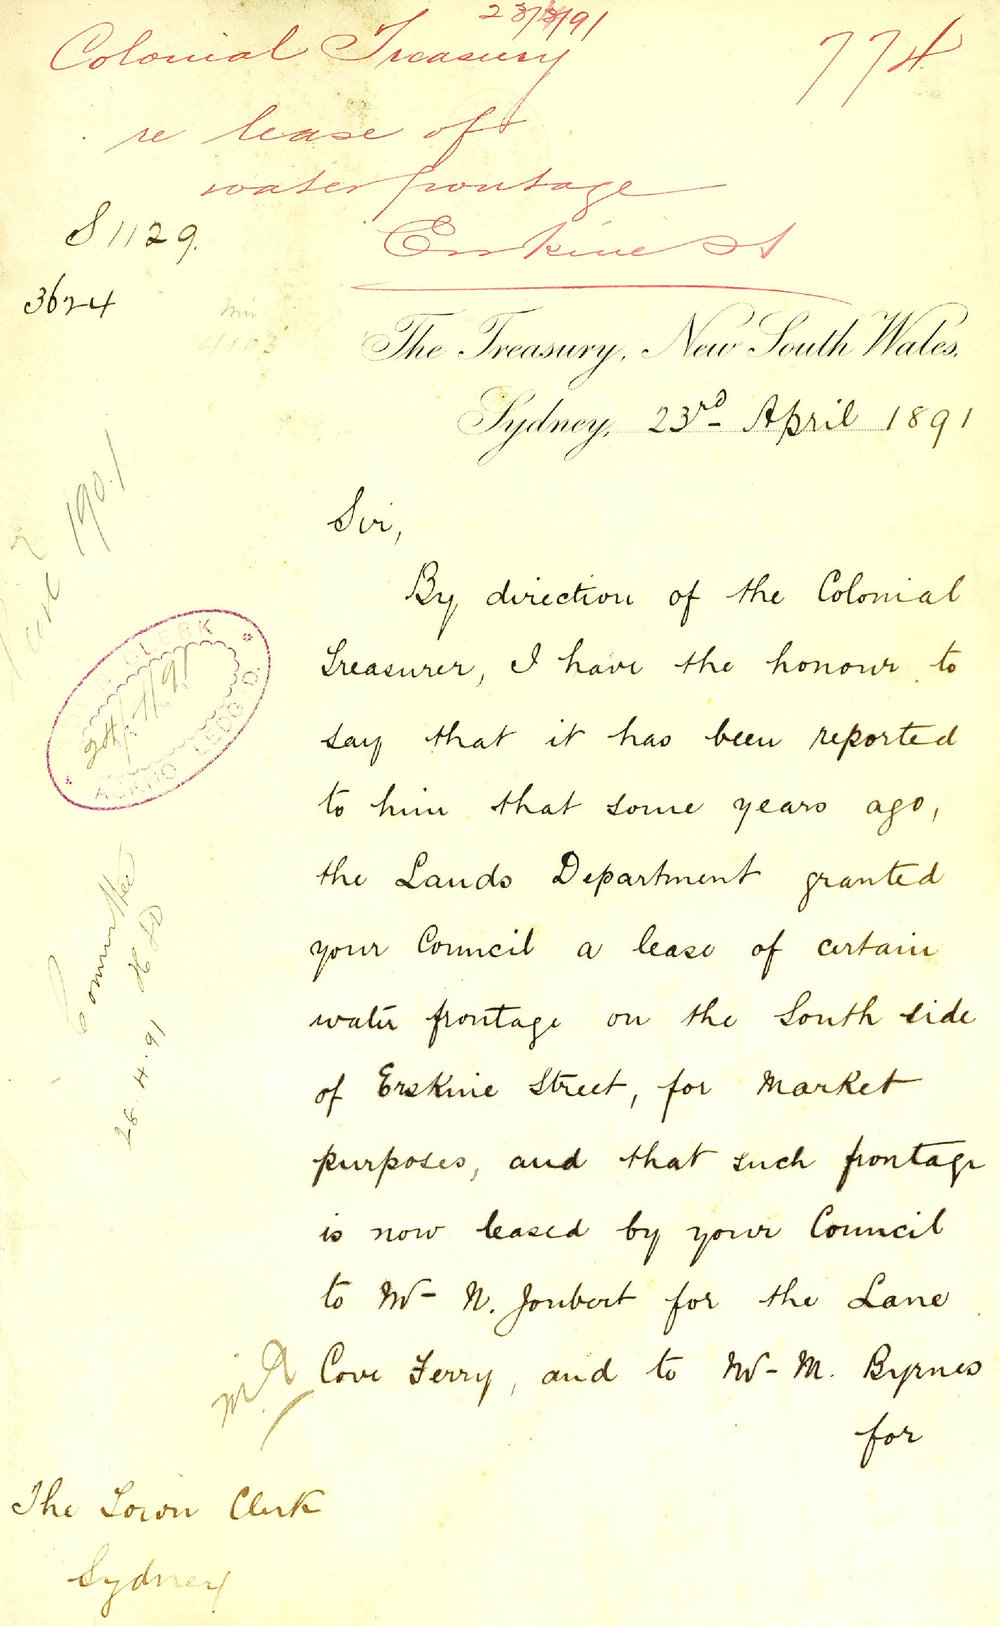 23/4/91
Colonial Treasury
774
re lease of
water frontage
Erskine St
S1129.
3624
min
1103
The Treasury, New South Wales,
Sydney, 23rd April 1891
1901
Sir,
By direction of the Colonial
Treasurer, I have the honour to
say that it has been reported
to him that some years ago,
the Lands Department granted
your Council a lease of certain
water frontage on the South side
of Erskine Street, for Market
purposes, and that such frontage
is now leased by your Council
to Mr N. Joubert for the Lane
Cove Ferry, and to Mr M. Byrnes
for
CLERK
24/4/91
ACKND
Committee
28.4.91
The Town Clerk
Sydney